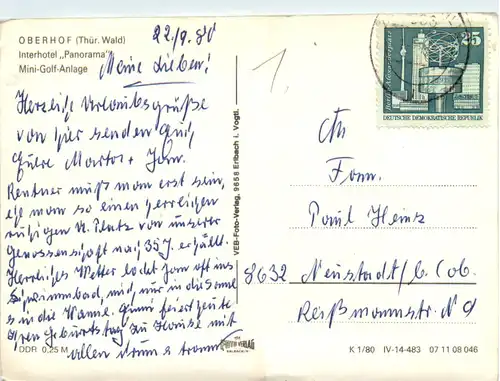 OBERHOF (Thür. Wald)
Interhotel „Panorama“
Mini-Golf-Anlage
22/9. 80
Meine Lieben!
Herzliche Urlaubsgrüße
von hier senden Euch
Eure Martor + Jon.
Rentner muß man erst sein,
ehe man so einen herrlichen
ruhigen U. Platz von unserer
Genossenschaft nach 35 J erhält.
Herrliches Wetter lockt Jon oft ins
Schwimmbad, mich nur in diesem
in die Wanne. Gunni feiert heute
ihren Geburtstag zu Hause mit
allen drum &
DDR 0,25 M
VEB-Foto-Verlag, 9658 Erlbach i. Vogtl.
FOTO VERLAG
1.
25
Berlin
DEUTSCHE DEMOKRATISCHE REPUBLIK
An
Fam.
Paul Heinz
8632 Neustadt/b. Cob.
Reßmannstr. N 9
K 1/80 IV-14-483 07 11 08 046